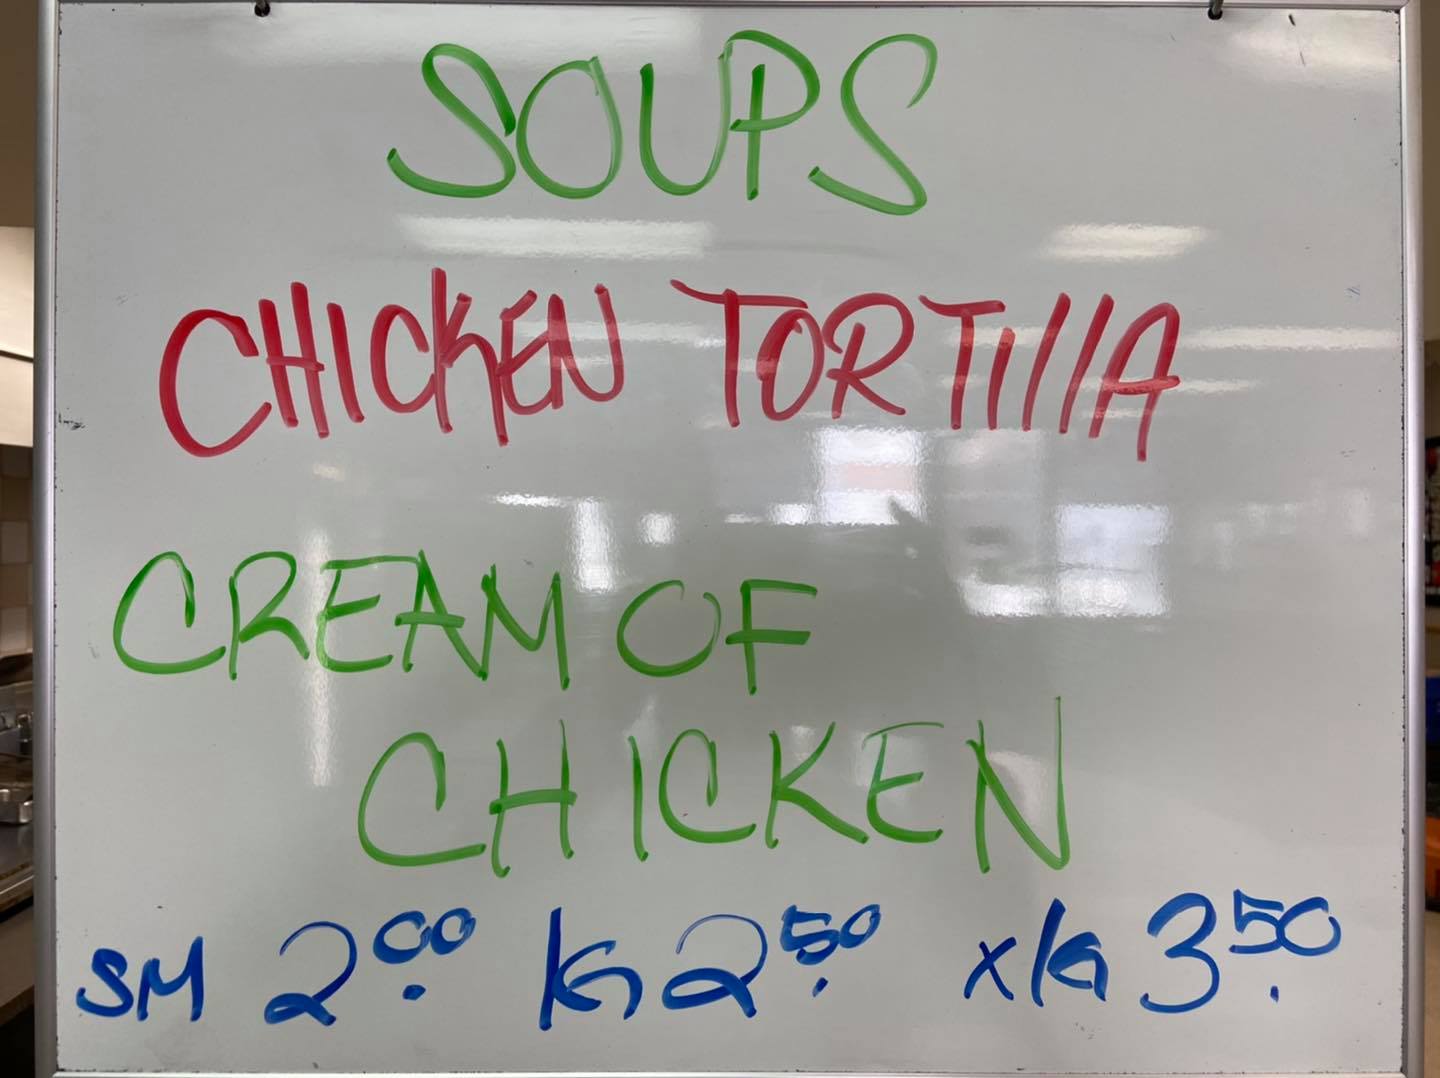 SOUPS
CHICKEN TORTIllA
CREAM OF
CHICKEN
SM 2.00 lG 2.50 XlG 3.50